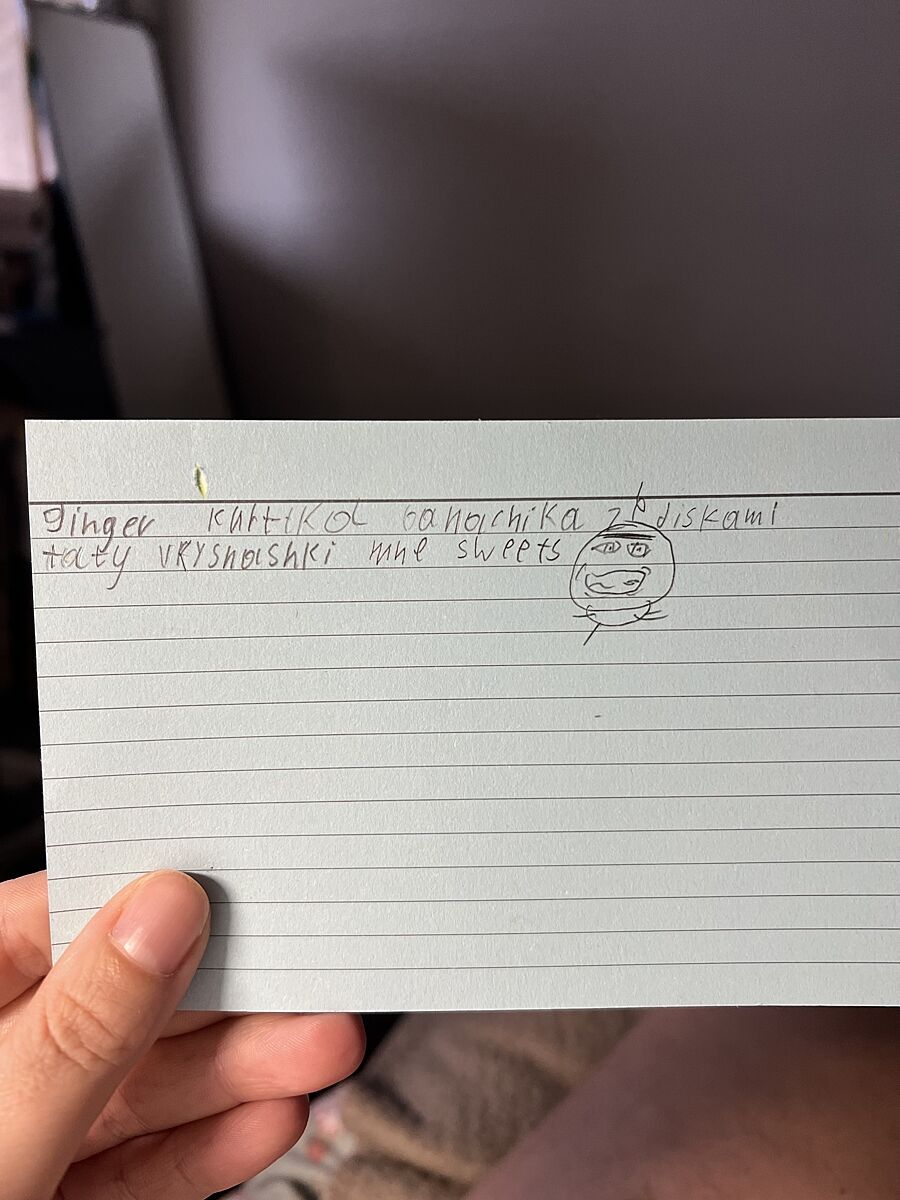 ginger kartikol banachika z diskami
taty vkysnashki mne sweets